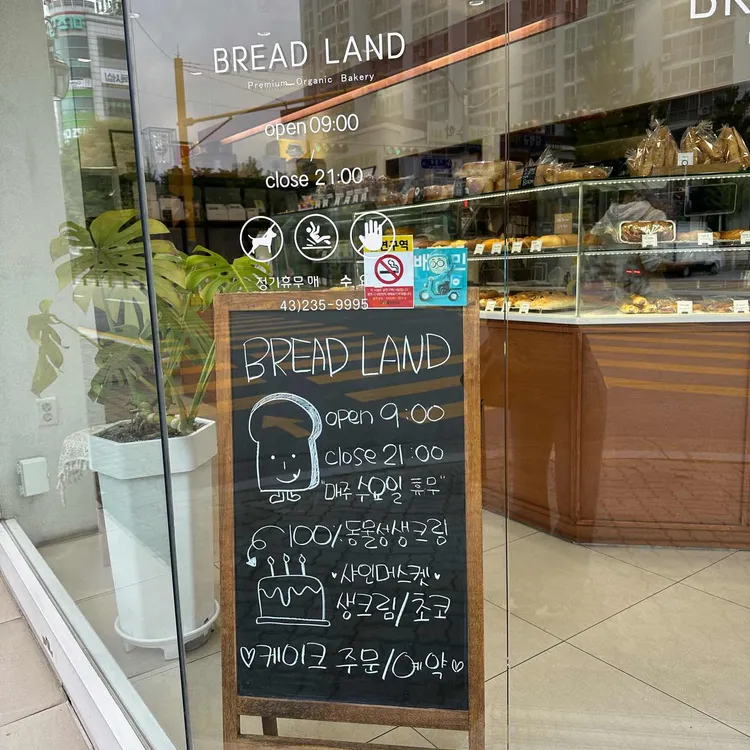 BREAD LAND
Premium Organic Bakery
open 09:00
/
close 21:00
정기휴무 매 수
43)235-9995
BREAD LAND
open 9:00
close 21:00
"매주 수요일 휴무"
100% 동물성생크림
샤인머스켓
생크림/초코
♡케이크 주문/예약♡